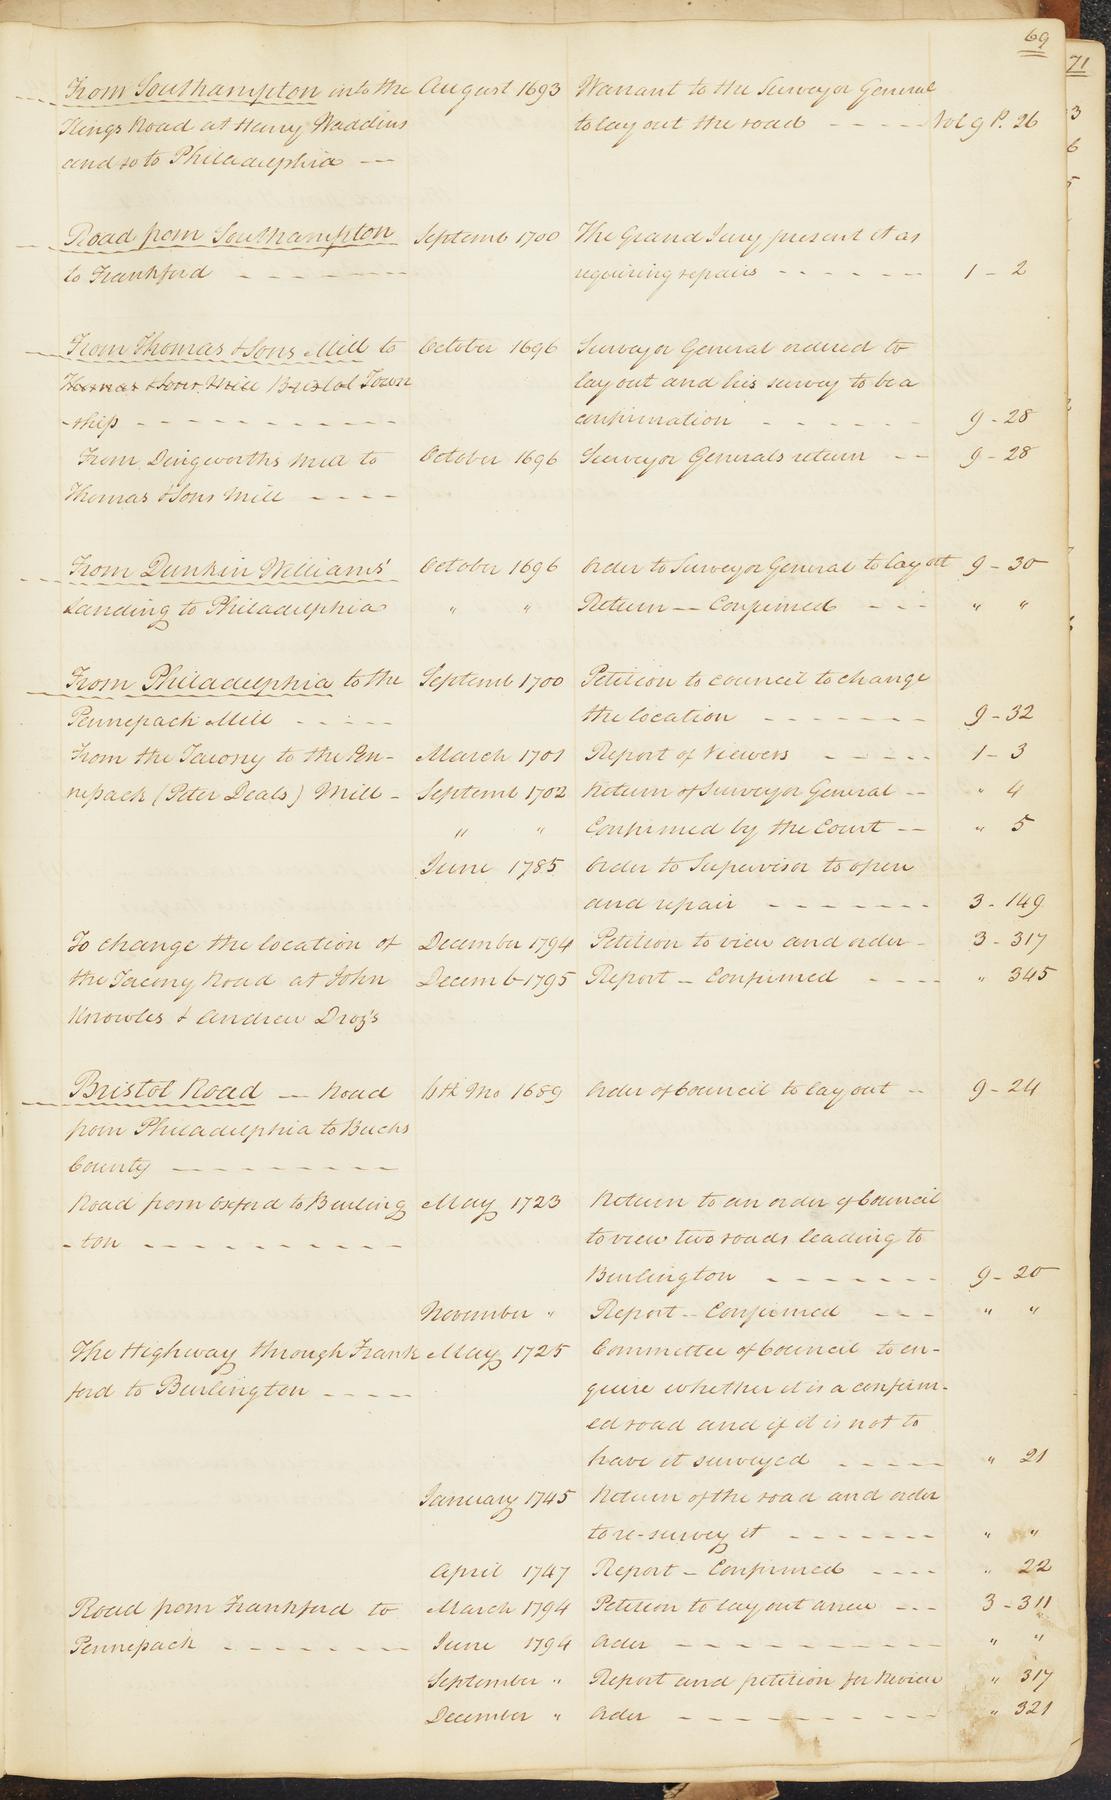 69
71
From Southampton into the August 1693 Warrant to the Surveyor General
Kings Road at Harry Waddins to lay out the road - - - - - Vol 9 P. 26
and so to Philadelphia - - -
Road from Southampton Septemb 1700 The Grand Jury present it as
to Frankford - - - - - - - requiring repairs - - - - - - - 1 - 2
From Thomas & Sons Mill to October 1696 Surveyor General ordered to
Thomas & Sons Mill Bristol Town lay out and his survey to be a
-ship - - - - - - - - - - - confirmation - - - - - - - 9 - 28
From Dungworths Mill to October 1696 Surveyor Generals return - - 9 - 28
Thomas & Sons Mill - - - -
From Dunkin Williams' October 1696 Order to Surveyor General to lay out 9 - 30
Landing to Philadelphia " " Return -- Confirmed - - - " "
From Philadelphia to the Septemb 1700 Petition to council to change
Pennepack Mill - - - - - the location - - - - - - - 9 - 32
From the Tacony to the Pen- March 1701 Report of Viewers - - - - - 1 - 3
nepack (Peter Deals) Mill - Septemb 1702 Return of Surveyor General -- " 4
" " Confirmed by the Court -- " 5
June 1785 Order to Supervisor to open
and repair - - - - - - - 3 - 149
To change the location of December 1794 Petition to view and order - 3 - 317
the Tacony Road at John Decemb 1795 Report - Confirmed - - - - " 345
Knowles & Andrew Droz's
Bristol Road -- Road 6th Mo 1689 Order of Council to lay out -- 9 - 24
from Philadelphia to Bucks
County - - - - - - - - -
Road from Oxford to Burling May 1723 Return to an order of Council
- ton - - - - - - - - - - to view two roads leading to
Burlington - - - - - - - 9 - 20
November " Report -- Confirmed - - - " "
The Highway through Frank May 1725 Committee of Council to en-
ford to Burlington - - - - - quire whether it is a confirm-
ed road and if it is not to
have it surveyed - - - - - " 21
January 1745 Return of the road and order
to re-survey it - - - - - - - " "
April 1747 Report - Confirmed - - - - " 22
Road from Frankford to March 1794 Petition to lay out anew - - - 3 - 311
Pennepack - - - - - - - - June 1794 Order - - - - - - - - - - " "
September " Report and petition for Review " 317
December " Order - - - - - - - - - - " 321